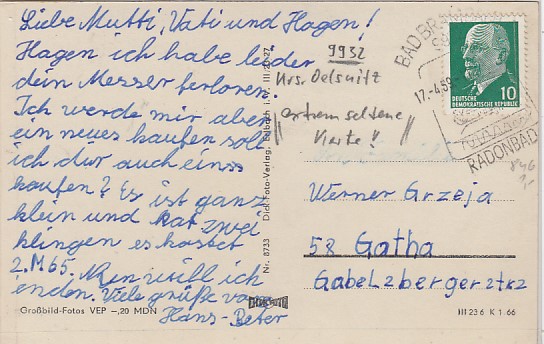 Liebe Mutti, Vati und Hagen!
Hagen ich habe leider
dein Messer ferloren.
Ich werde mir aber
ein neues kaufen soll
ich dür auch einss
kaufen? Es ist ganz
klein und hat zwei
klingen es kostet
2.M65. Nun will ich
enden. Viele grüße von
Hans-Peter
Großbild-Fotos VEP –,20 MDN
Nr. 8733 Dick Foto-Verlag, Erlbach i. V. III 27 27
9932
Krs. Oelsnitz
extrem seltene
Karte!!
BAD BR
17.-4.69
RADONBAD
DEUTSCHE
DEMOKRATISCHE REPUBLIK
10
846
1,-
Werner Grzeja
58 Gotha
Gabelzbergerztr 2
III 23 6 K 1 66